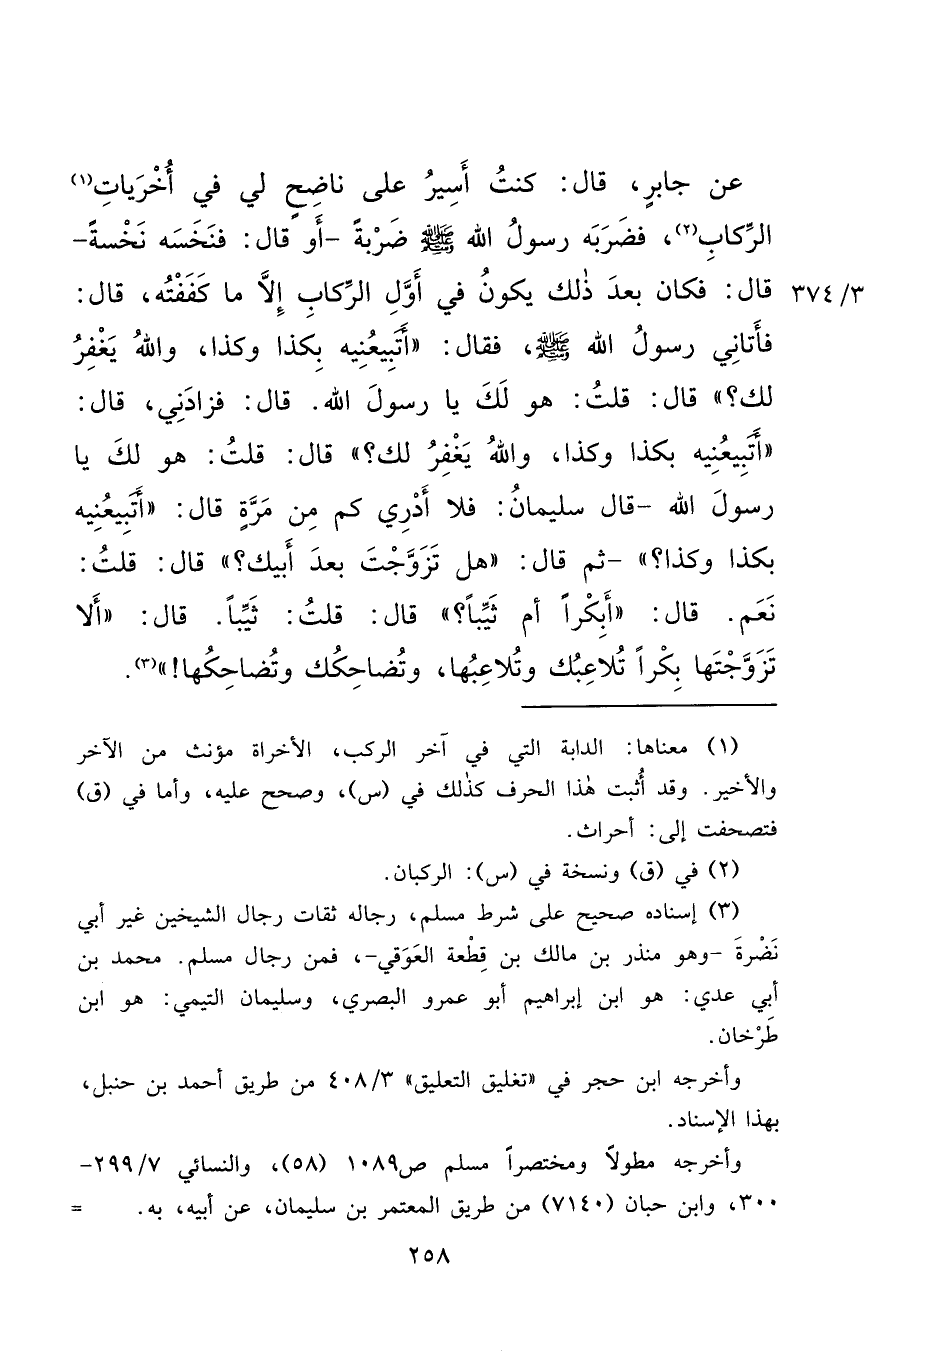 عن جابرٍ، قال: كنتُ أَسِيرُ على ناضِحٍ لي في أُخْرَياتِ(١)
الرِّكابِ(٢)، فضَرَبَه رسولُ الله ﷺ ضَرْبةً -أو قال: فنَخَسَه نَخْسةً-
قال: فكان بعدَ ذٰلك يكونُ في أَوَّلِ الرِّكابِ إِلاَّ ما كَفَفْتُه، قال: ٣٧٤/٣
فأَتانِي رسولُ الله ﷺ، فقال: «أَتَبِيعُنِيه بكذا وكذا، واللهُ يَغْفِرُ
لك؟» قال: قلتُ: هو لَكَ يا رسولَ الله. قال: فزادَنِي، قال:
«أَتَبِيعُنِيه بكذا وكذا، واللهُ يَغْفِرُ لك؟» قال: قلتُ: هو لكَ يا
رسولَ الله -قال سليمانُ: فلا أَدْرِي كم مِن مَرَّةٍ قال: «أَتَبِيعُنِيه
بكذا وكذا؟» -ثم قال: «هل تَزَوَّجْتَ بعدَ أَبيك؟» قال: قلتُ:
نَعَم. قال: «أَبِكْراً أم ثَيِّباً؟» قال: قلتُ: ثَيِّباً. قال: «أَلا
تَزَوَّجْتَها بِكْراً تُلاعِبُك وتُلاعِبُها، وتُضاحِكُك وتُضاحِكُها!»(٣).
(١) معناها: الدابة التي في آخر الركب، الأخراة مؤنث من الآخر
والأخير. وقد أُثبت هٰذا الحرف كذٰلك في (س)، وصحح عليه، وأما في (ق)
فتصحفت إلى: أحراث.
(٢) في (ق) ونسخة في (س): الركبان.
(٣) إسناده صحيح على شرط مسلم، رجاله ثقات رجال الشيخين غير أبي
نَضْرةَ -وهو منذر بن مالك بن قِطْعة العَوَقي-، فمن رجال مسلم. محمد بن
أبي عدي: هو ابن إبراهيم أبو عمرو البصري، وسليمان التيمي: هو ابن
طَرْخان.
وأخرجه ابن حجر في «تغليق التعليق» ٤٠٨/٣ من طريق أحمد بن حنبل،
بهذا الإسناد.
وأخرجه مطولاً ومختصراً مسلم ص١٠٨٩ (٥٨)، والنسائي ٢٩٩/٧-
٣٠٠، وابن حبان (٧١٤٠) من طريق المعتمر بن سليمان، عن أبيه، به. =
٢٥٨